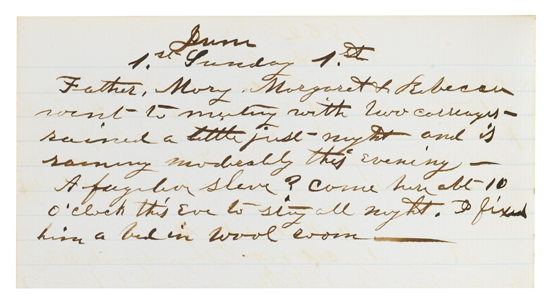 June
1.st Sunday 1.th
Father, Mary, Margaret & Rebecca
went to meeting with two carriages –
rained a little just night and is
raining moderately this Evening –
A fugitive Slave ? Come here abt 10
o'clock this Eve to stay all night. I fixed
him a bed in wool room